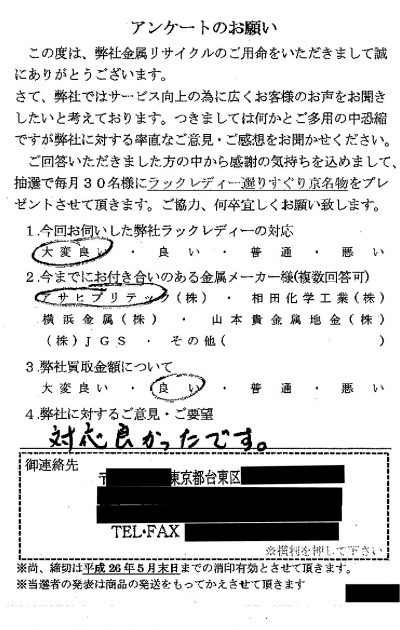 アンケートのお願い
この度は、弊社金属リサイクルのご用命をいただきまして誠
にありがとうございます。
さて、弊社ではサービス向上の為に広くお客様のお声をお聞き
したいと考えております。つきましては何かとご多用の中恐縮
ですが弊社に対する率直なご意見・ご感想をお聞かせください。
ご回答いただきました方の中から感謝の気持ちを込めまして、
抽選で毎月30名様にラックレディー選りすぐり京名物をプレ
ゼントさせて頂きます。ご協力、何卒宜しくお願い致します。
1.今回お伺いした弊社ラックレディーの対応
大変良い ・ 良い ・ 普通 ・ 悪い
2.今までにお付き合いのある金属メーカー様(複数回答可)
アサヒプリテック(株) ・ 相田化学工業(株)
横浜金属(株) ・ 山本貴金属地金(株)
(株)JGS ・ その他( )
3.弊社買取金額について
大変良い ・ 良い ・ 普通 ・ 悪い
4.弊社に対するご意見・ご要望
対応良かったです。
御連絡先
〒 東京都台東区
TEL・FAX
※横判を押して下さい
※尚、締切は平成26年5月末日までの消印有効とさせて頂きます。
※当選者の発表は商品の発送をもってかえさせて頂きます